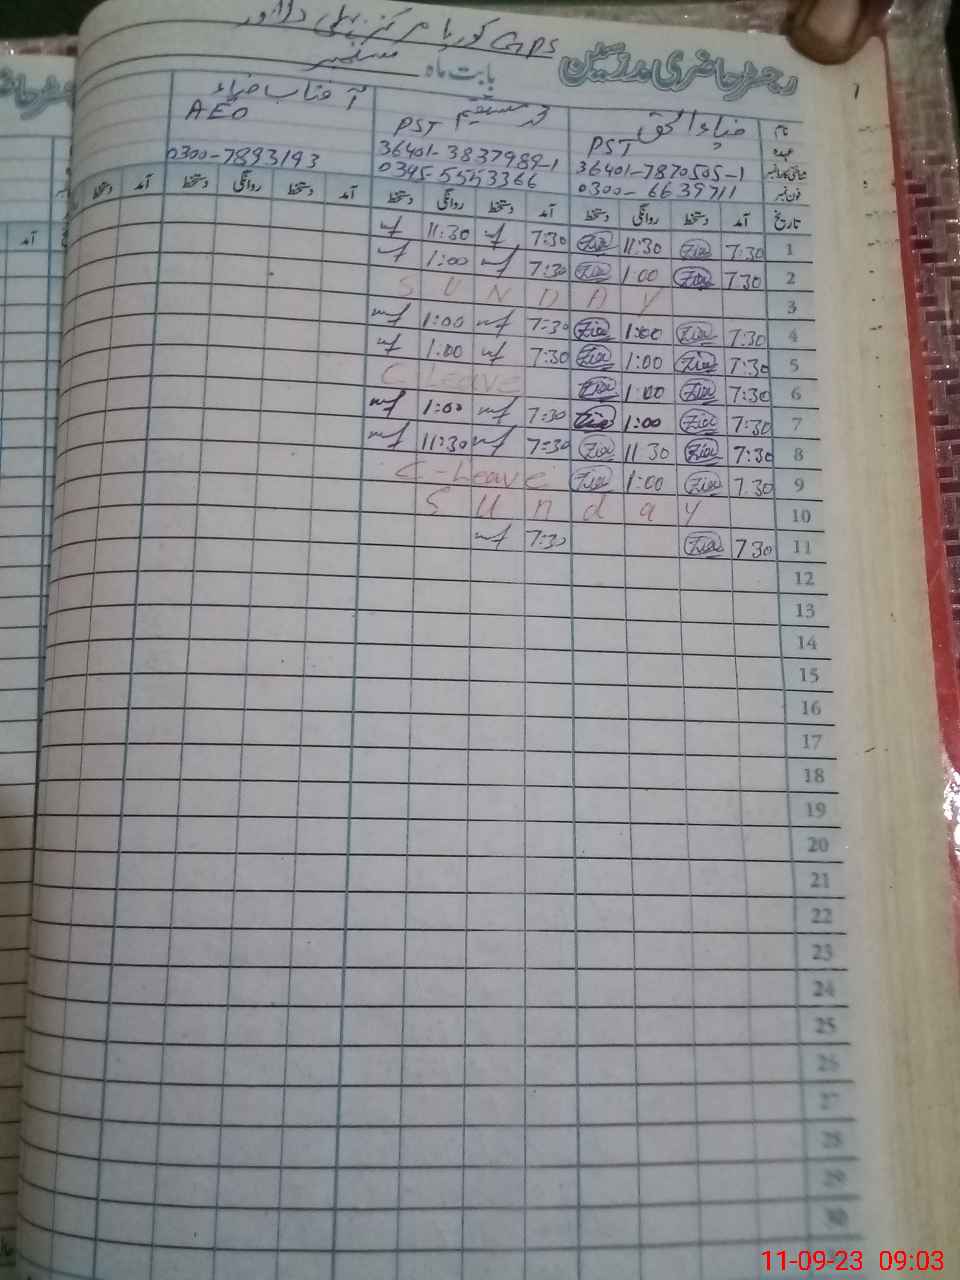 GPS کوریا مرکز پہلی دلاور
رجسٹر حاضری مدرسین بابت ماہ ستمبر
نام ضیاء الحق محمد مستقیم آفتاب ضیاء
عہدہ PST PST AEO
شناختی کارڈ نمبر 36401-7870505-1 36401-3837989-1
فون نمبر 0300-6639711 0345-5553366 0300-7893193
تاریخ آمد دستخط روانگی دستخط آمد دستخط روانگی دستخط آمد دستخط روانگی دستخط آمد دستخط
1 7:30 Zia 11:30 Zia 7:30 11:30
2 7:30 Zia 1:00 Zia 7:30 1:00
3 SUNDAY
4 7:30 Zia 1:00 Zia 7:30 1:00
5 7:30 Zia 1:00 Zia 7:30 1:00
6 7:30 Zia 1:00 Zia C Leave
7 7:30 Zia 1:00 Zia 7:30 1:00
8 7:30 Zia 11:30 Zia 7:30 11:30
9 7:30 Zia 1:00 Zia C-Leave
10 Sunday
11 7:30 Zia 7:30
12
13
14
15
16
17
18
19
20
21
22
23
24
25
26
27
28
29
30
11-09-23 09:03